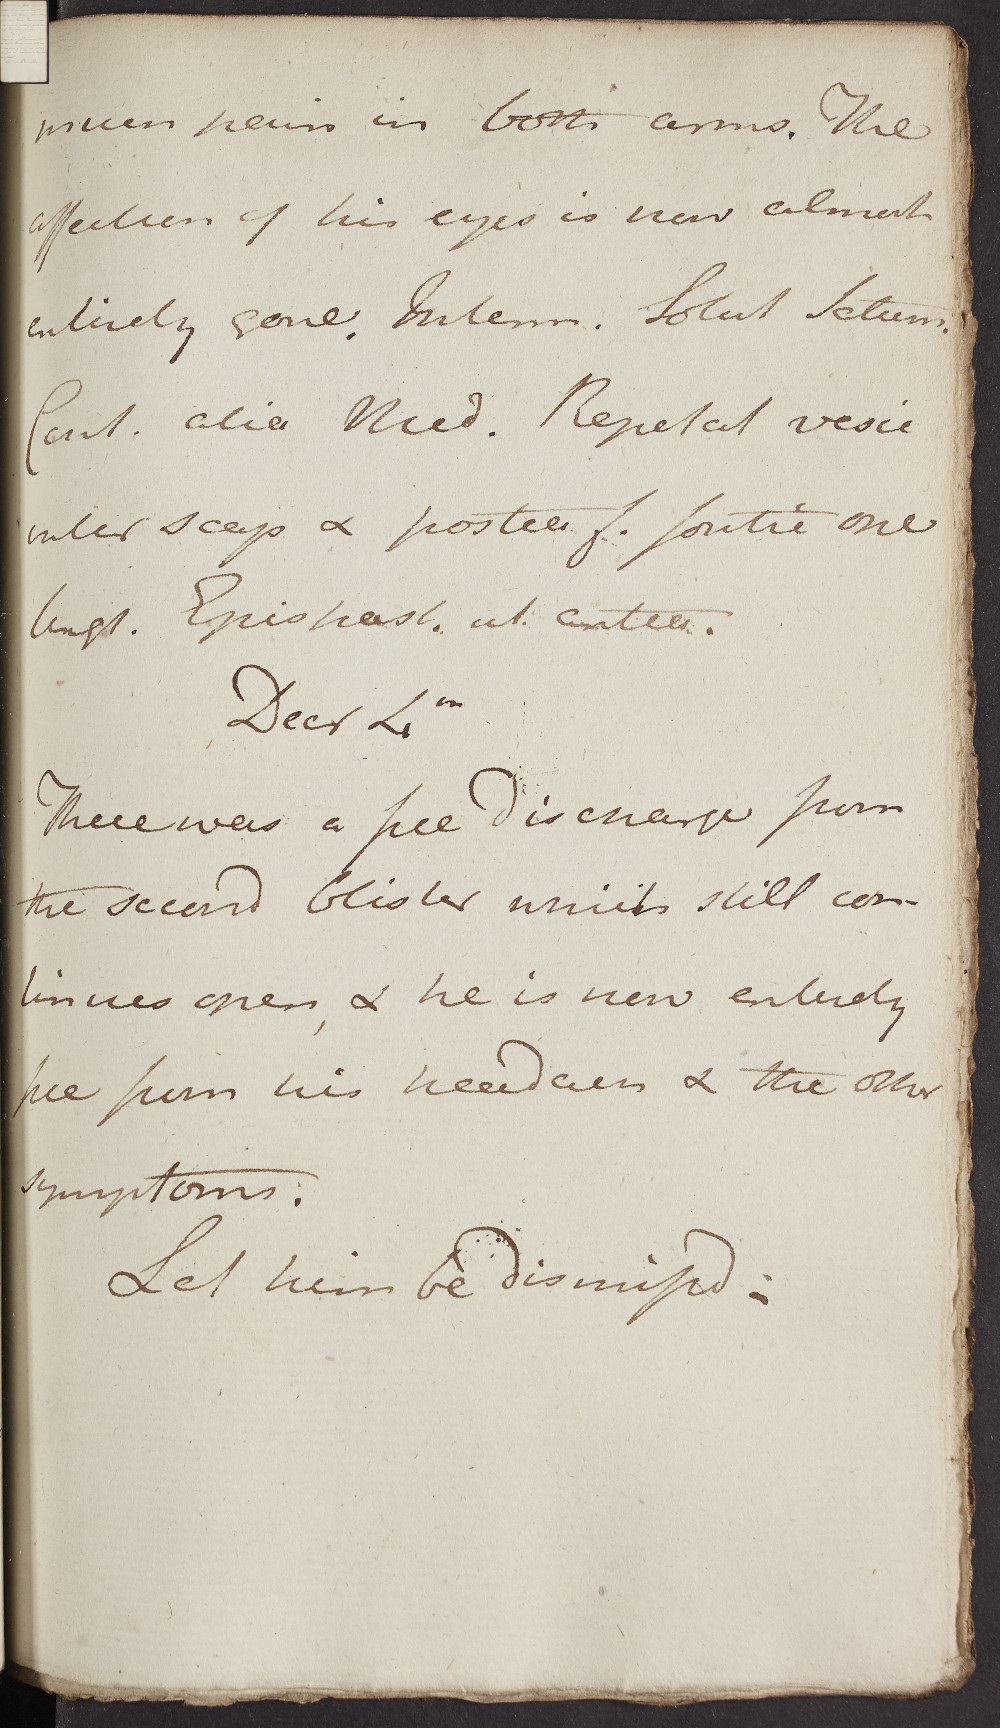 much pain in both arms. The
affection of his eyes is now almost
entirely gone. Interm. Solut
Cont. alia Med. Repetat vesic
inter scap & postea f. fontic one
Ungt. Epispast. ut antea.
Decr 4th
There was a free discharge from
the second blister which still con-
tinues open, & he is now entirely
free from his headach & the other
symptoms.
Let him be dismissd: